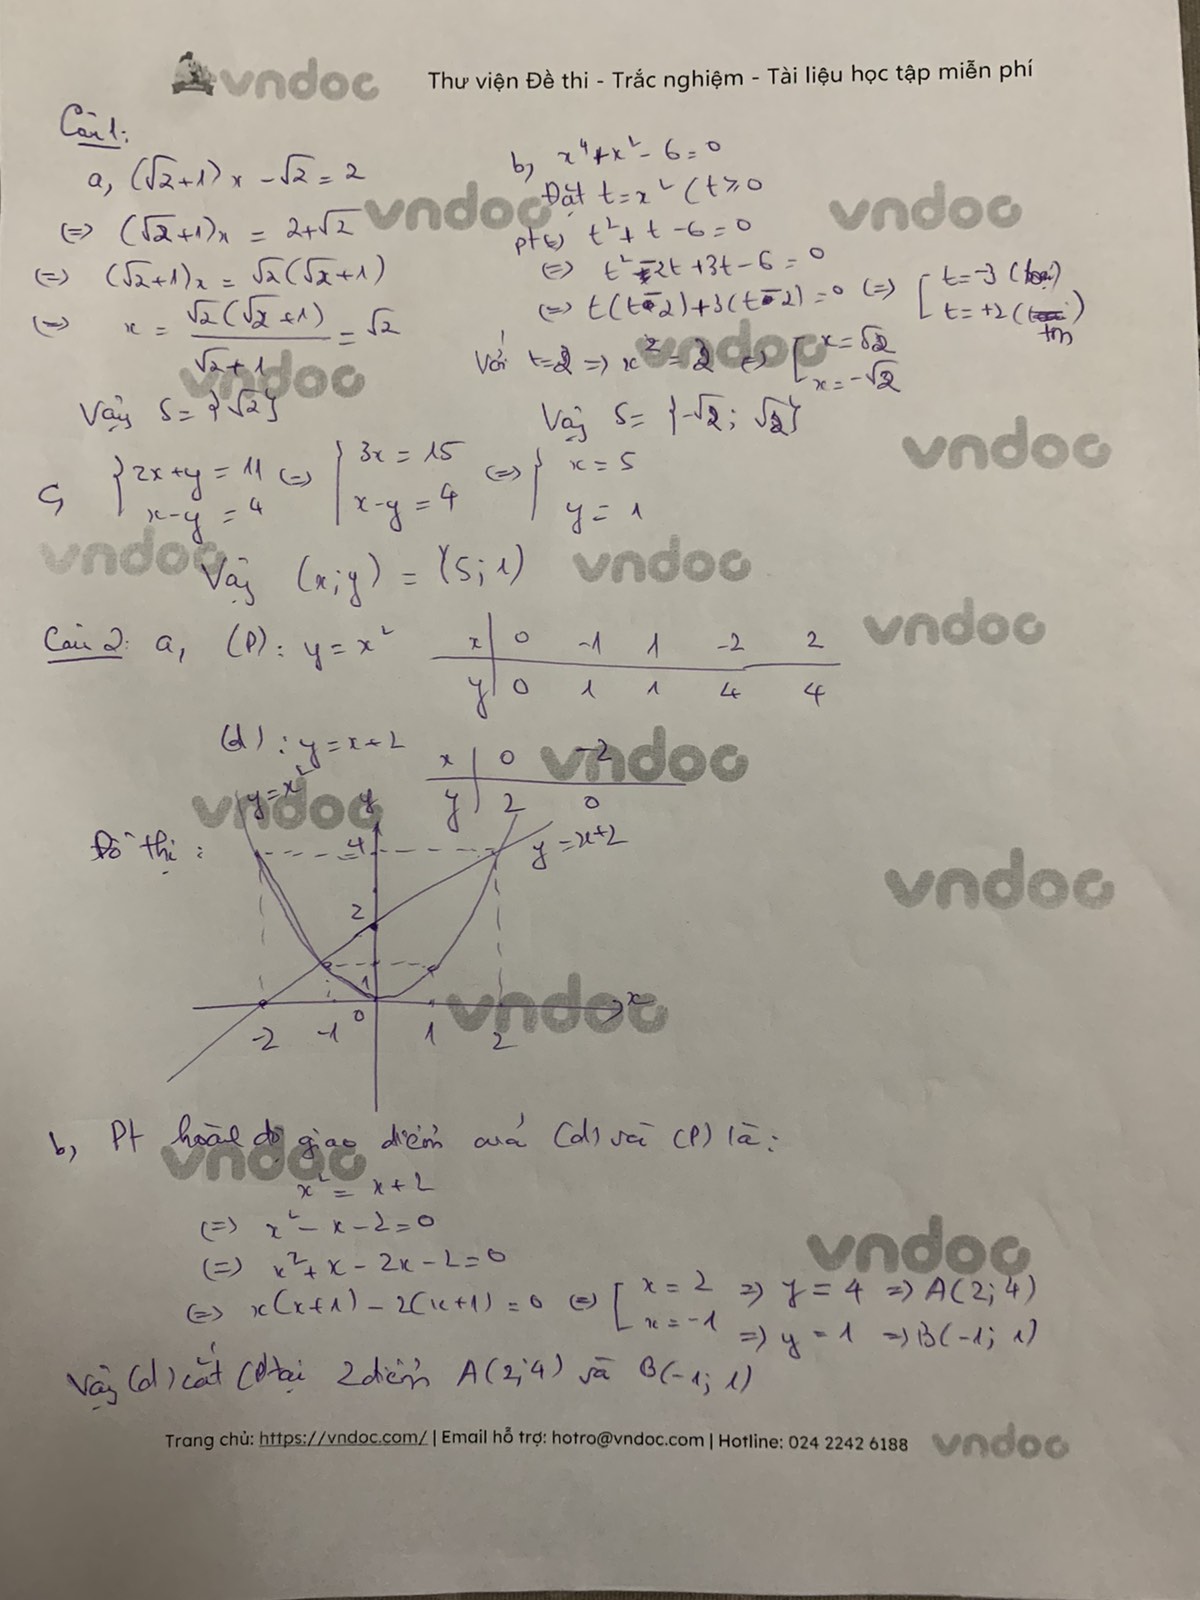 vndoc Thư viện Đề thi - Trắc nghiệm - Tài liệu học tập miễn phí
Câu 1:
a, (√2+1)x - √2 = 2
(=) (√2+1)x = 2+√2
(=) (√2+1)x = √2(√2+1)
(=) x = √2(√2+1)/√2+1 = √2
Vậy S= {√2}
b, x⁴+x²- 6=0
Đặt t=x² (t≥0
pt (=) t²+ t -6=0
(=) t²-2t+3t-6=0
(=) t(t-2)+3(t-2)=0 (=) [ t=-3 (loại)
t=+2 (tm)
Với t=2 => x²=2 (=) [ x=√2
x=-√2
Vậy S= {-√2; √2}
c, { 2x+y=11 (=) { 3x=15 (=) { x=5
x-y=4 x-y=4 y=1
Vậy (x;y) = (5;1)
Câu 2: a, (P): y=x²
x | 0 -1 1 -2 2
y | 0 1 1 4 4
(d): y=x+2
x | 0 -2
y | 2 0
Đồ thị:
y=x² y
4 y=x+2
2
1
x
-2 -1 0 1 2
b, Pt hoành độ giao điểm của (d) và (P) là:
x²= x+2
(=) x²- x -2=0
(=) x²+x - 2x -2=0
(=) x(x+1) - 2(x+1)=0 (=) [ x=2 => y=4 => A(2;4)
x=-1 => y=1 => B(-1; 1)
Vậy (d) cắt (P) tại 2 điểm A(2;4) và B(-1; 1)
Trang chủ: https://vndoc.com/ | Email hỗ trợ: hotro@vndoc.com | Hotline: 024 2242 6188 vndoc
vndoc
vndoc
vndoc
vndoc
vndoc
vndoc
vndoc
vndoc
vndoc
vndoc
vndoc
vndoc
vndoc
vndoc